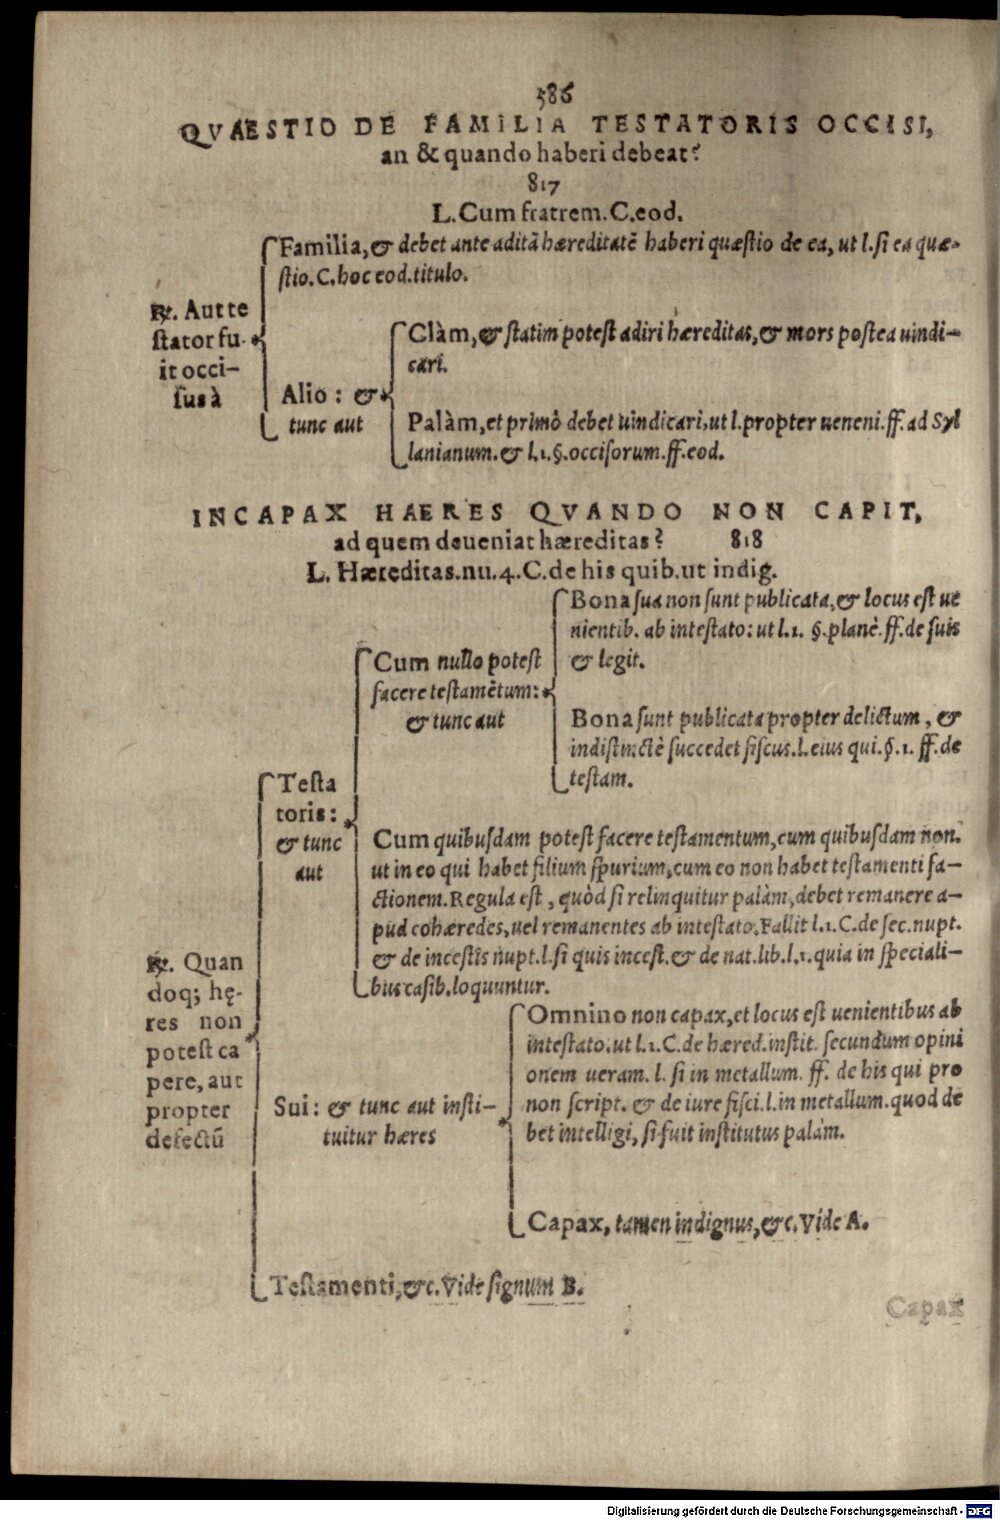 586
QVAESTIO DE FAMILIA TESTATORIS OCCISI,
an & quando haberi debeat?
817
L. Cum fratrem. C. eod.
Familia, & debet ante aditā hæreditatē haberi quæstio de ea, ut l. si ea quæ-
stio. C. hoc eod. titulo.
℞. Aut te
stator fu-
it occi-
sus à
Alio: &
tunc aut
Clàm, & statim potest adiri hæreditas, & mors postea uindi-
cari.
Palàm, et primò debet uindicari, ut l. propter ueneni. ff. ad Syl
lanianum. & l. 1. §. occisorum. ff. eod.
INCAPAX HAERES QVANDO NON CAPIT,
ad quem deueniat hæreditas? 818
L. Hæreditas. nu. 4. C. de his quib. ut indig.
℞. Quan
doq; hę-
res non
potest ca
pere, aut
propter
defectū
Testa
toris:
& tunc
aut
Cum nullo potest
facere testamētum:
& tunc aut
Bona sua non sunt publicata, & locus est ue
nientib. ab intestato: ut l. 1. §. planè. ff. de suis
& legit.
Bona sunt publicata propter delictum, &
indistinctè succedet fiscus. l. eius qui. §. 1. ff. de
testam.
Cum quibusdam potest facere testamentum, cum quibusdam non.
ut in eo qui habet filium spurium, cum eo non habet testamenti fa-
ctionem. Regula est, quòd si relinquitur palàm, debet remanere a-
pud cohæredes, uel remanentes ab intestato. Fallit l. 1. C. de sec. nupt.
& de incestis nupt. l. si quis incest. & de nat. lib. l. 1. quia in speciali-
bus casib. loquuntur.
Sui: & tunc aut insti-
tuitur hæres
Omnino non capax, et locus est uenientibus ab
intestato. ut l. 1. C. de hæred. instit. secundum opini
onem ueram. l. si in metallum. ff. de his qui pro
non script. & de iure fisci. l. in metallum. quod de
bet intelligi, si fuit institutus palàm.
Capax, tamen indignus, &c. Vide A.
Testamenti, &c. Vide signum B.
Capax
Digitalisierung gefördert durch die Deutsche Forschungsgemeinschaft - DFG